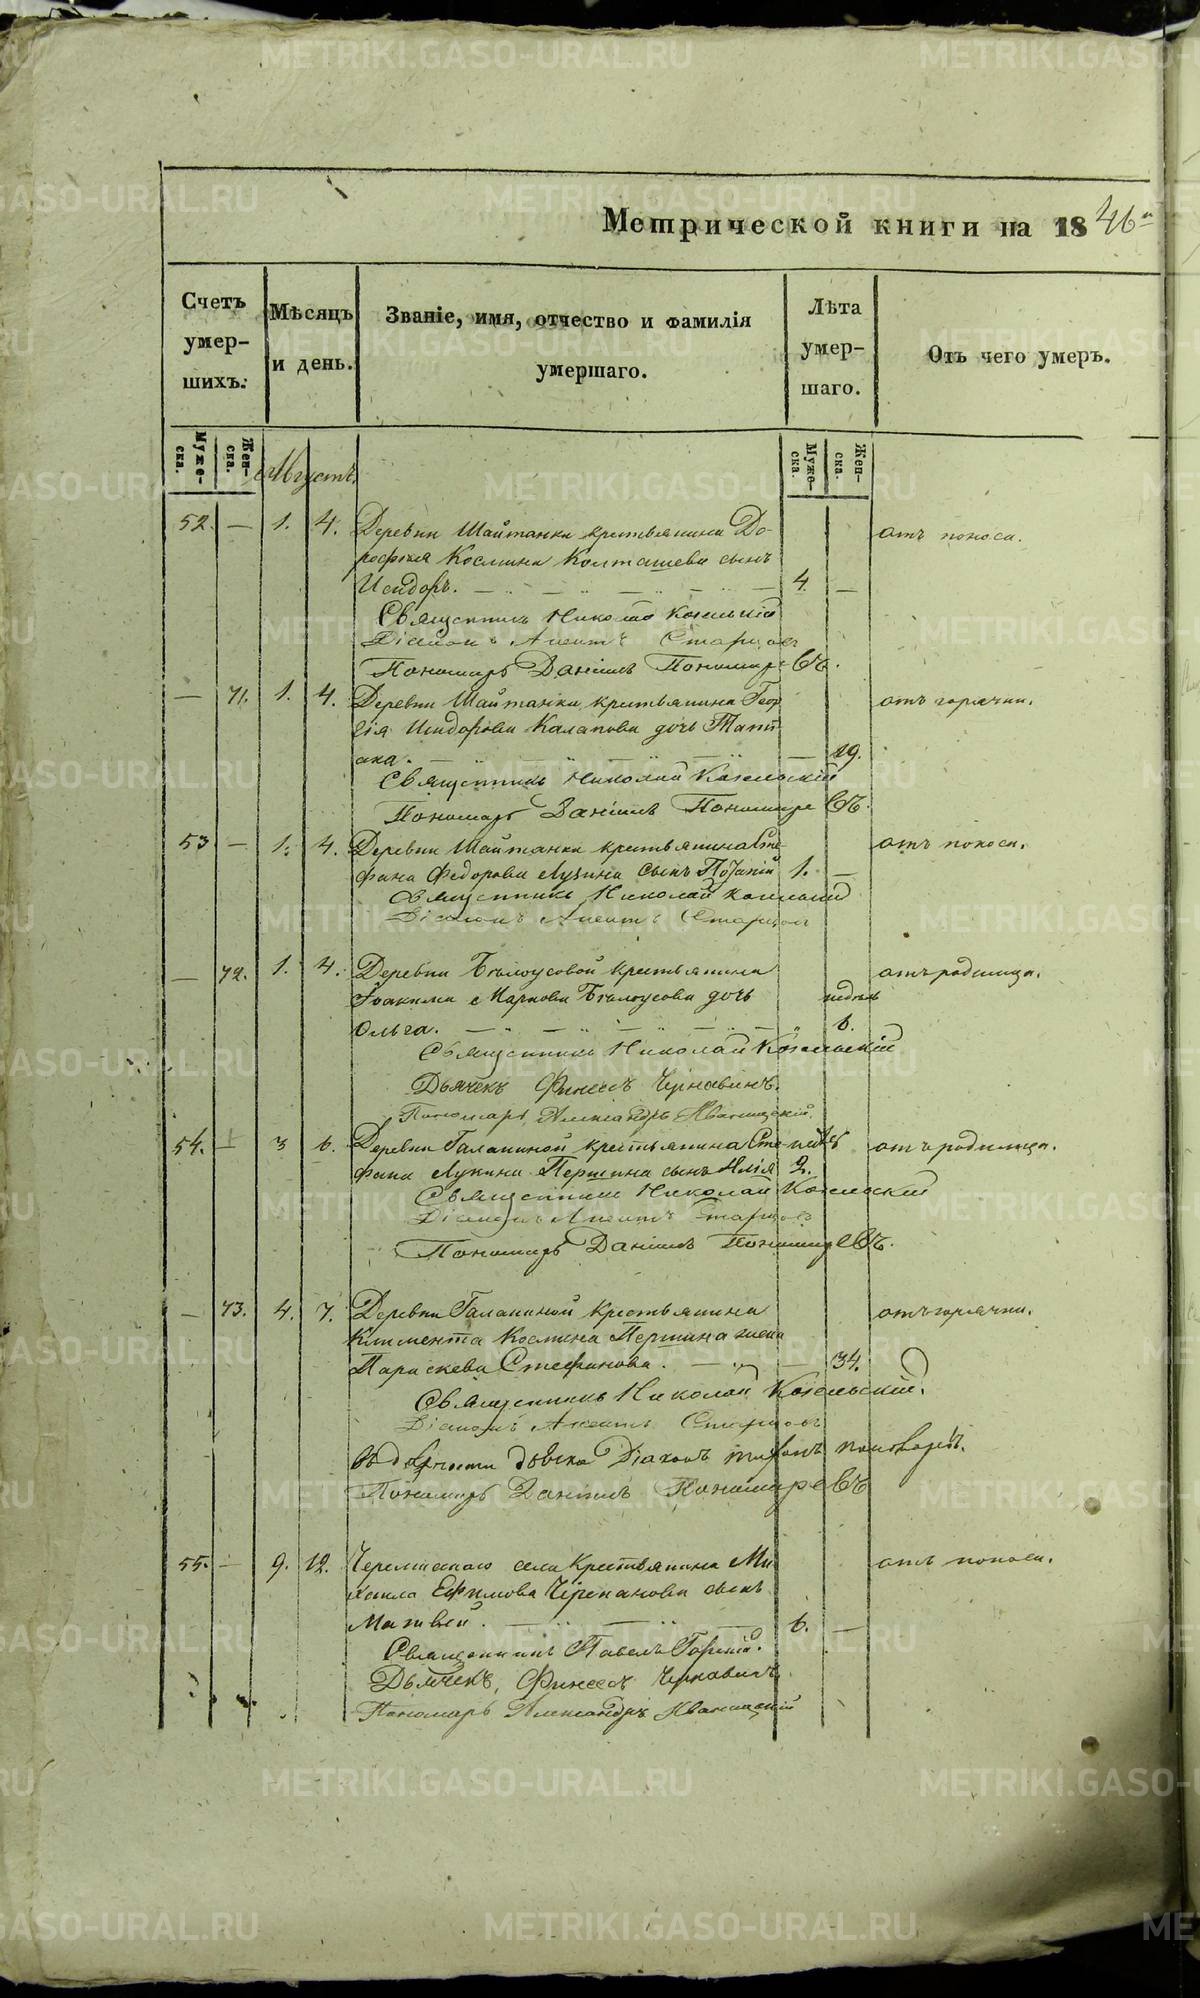 Метрической книги на 1846
Счетъ умер-шихъ.
Мѣсяцъ и день.
Званіе, имя, отчество и фамилія умершаго.
Лѣта умер-шаго.
Отъ чего умеръ.
Муже-ска.
Жен-ска.
Августъ.
Муже-ска.
Жен-ска.
52. — 1. 4. Деревни Шайтанки крестьянина До-
рофея Космина Колташева сынъ
Исидоръ. 4. —
отъ поноса.
Священникъ Николай Козельскій
Діаконъ Старцовъ
Пономарь Даніилъ Пономаревъ.
— 71. 1. 4. Деревни Шайтанки крестьянина Геор
гія Исидорова дочь Татіа
на. — 19.
отъ горячки.
Священникъ Николай Козельскій
Пономарь Даніилъ Пономаревъ.
53 — 1. 4. Деревни Шайтанки крестьянина Сте-
фана Федорова Лузина сынъ 1. —
отъ поноса.
Священникъ Николай Козельскій
Діаконъ Старцовъ
— 72. 1. 4. Деревни Бѣлоусовой крестьянина
Іоакима Маркова Бѣлоусова дочь недѣль
Ольга. 6.
отъ родимца.
Священникъ Николай Козельскій
Дьячекъ Финеесъ Чернавинъ.
Пономарь Александръ Иваницкій.
54. — 3 6. Деревни Галаниной крестьянина Сте-
фана Лукина Першина сынъ Илія 2.
отъ родимца.
Священникъ Николай Козельскій
Діаконъ Старцовъ
Пономарь Даніилъ Пономаревъ.
— 73. 4. 7. Деревни Галаниной крестьянина
Климента Космина Першина жена
Параскева Стефанова. — 34.
отъ горячки.
Священникъ Николай Козельскій.
Діаконъ Старцовъ
Діаконъ
Пономарь Даніилъ Пономаревъ
55. — 9. 12. Черемисскаго села крестьянина Ми
хаила Ефимова Черепанова сынъ
Матвей. 6. —
отъ поноса.
Священникъ Павелъ Горный.
Дьячекъ, Финеесъ Чернавинъ
Пономарь Александръ Иваницкій
METRIKI.GASO-URAL.RU